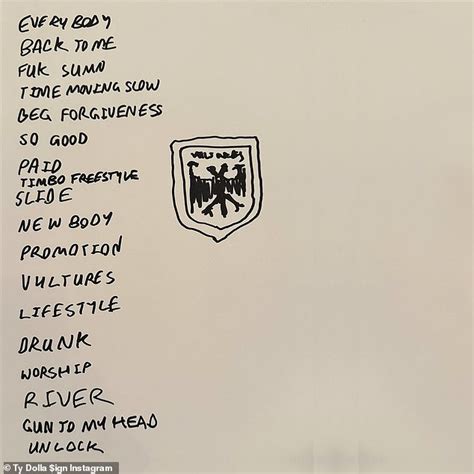 EVERYBODY
BACK TO ME
FUK SUMN
TIME MOVING SLOW
BEG FORGIVENESS
SO GOOD
PAID
TIMBO FREESTYLE
SLIDE
NEW BODY
PROMOTION
VULTURES
LIFESTYLE
DRUNK
WORSHIP
RIVER
GUN TO MY HEAD
UNLOCK
VULTURES
© Ty Dolla $ign Instagram